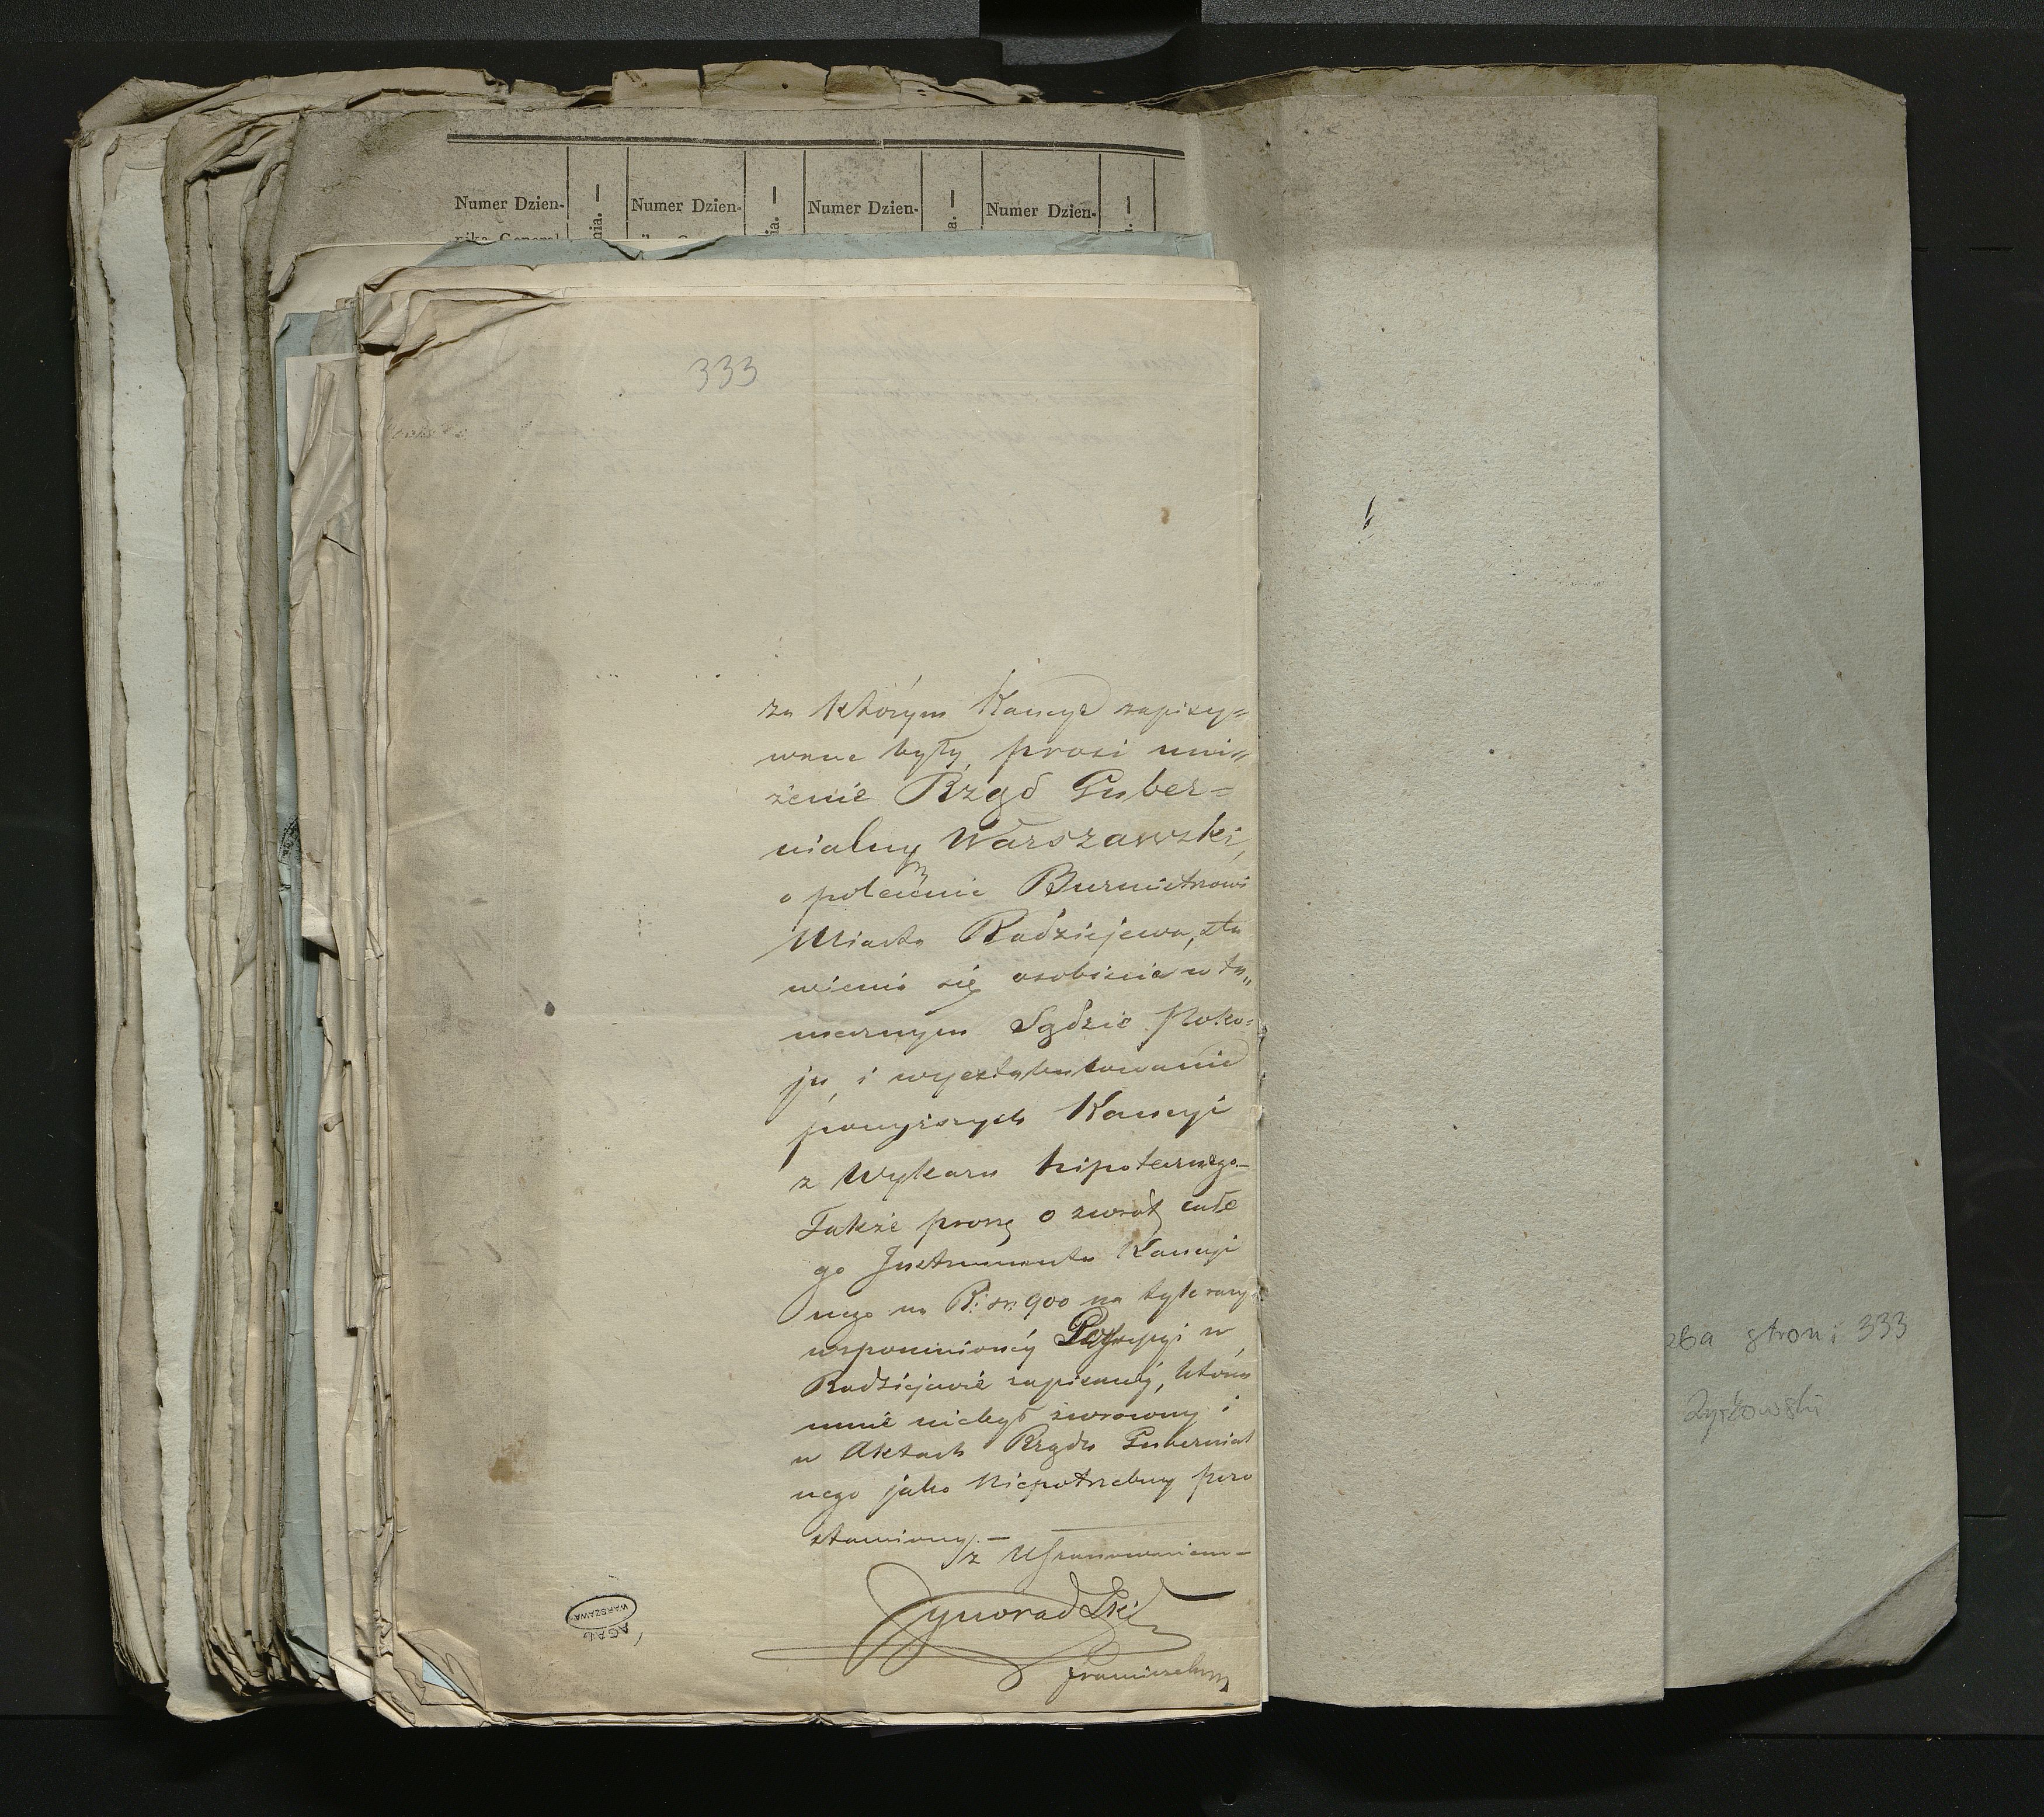 Numer Dzien- Numer Dzien- Numer Dzien- Numer Dzien-
333
za którym Kaucye zapisy=
wane były, prosi uni=
żenie Rząd Guber=
nialny Warszawski,
o polecenie Burmistrzowi
Miasta Radziejewa, sta
wienia się osobiście w tu„
mecznym Sądzie Poko=
ju, i wyextabulowanie
powyższych Kaucyi
z Wykazu hipotecznego.–
Także proszę o zwrot całe
go Instrumentu Kaucyi
nego na R: sr: 900 na tyle razy
wspomnioney w
Radziejewie zapisaney, który
mnie niebył zwrócony i
w Aktach Rządu Gubernial
nego jako niepotrzebny pozo
stawiony.–
z Uszanowaniem–
Franciszek
AGAD
WARSZAWA
stron: 333
Zyżkowski